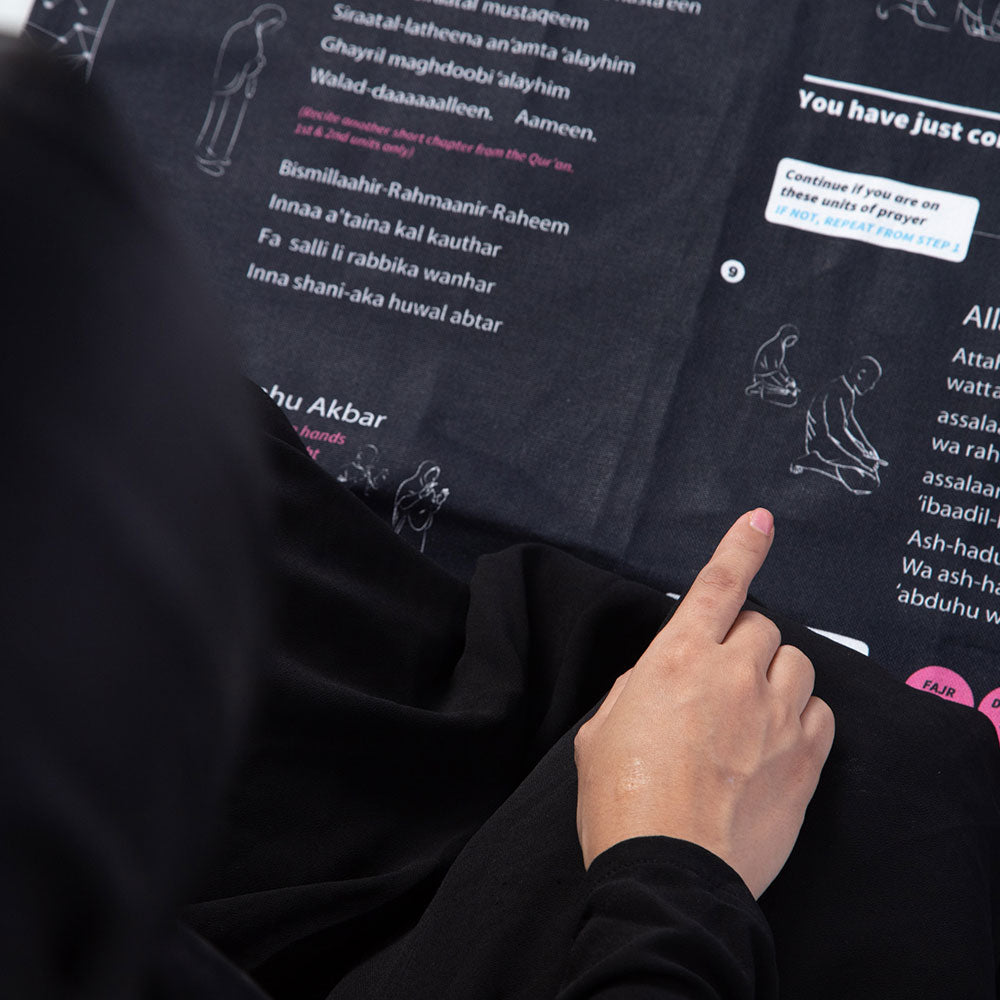 mustaqeem
Siraatal-latheena an'amta 'alayhim
Ghayril maghdoobi 'alayhim
Walad-daaaaaalleen. Aameen.
(Recite another short chapter from the Qur'an.
1st & 2nd units only)
Bismillaahir-Rahmaanir-Raheem
Innaa a'taina kal kauthar
Fa salli li rabbika wanhar
Inna shani-aka huwal abtar
hu Akbar
hands
You have just co
Continue if you are on
these units of prayer
IF NOT, REPEAT FROM STEP 1
9
All
Attah
watta
assala
wa rah
assalaar
'ibaadil-
Ash-hadu
Wa ash-ha
'abduhu w
FAJR
D